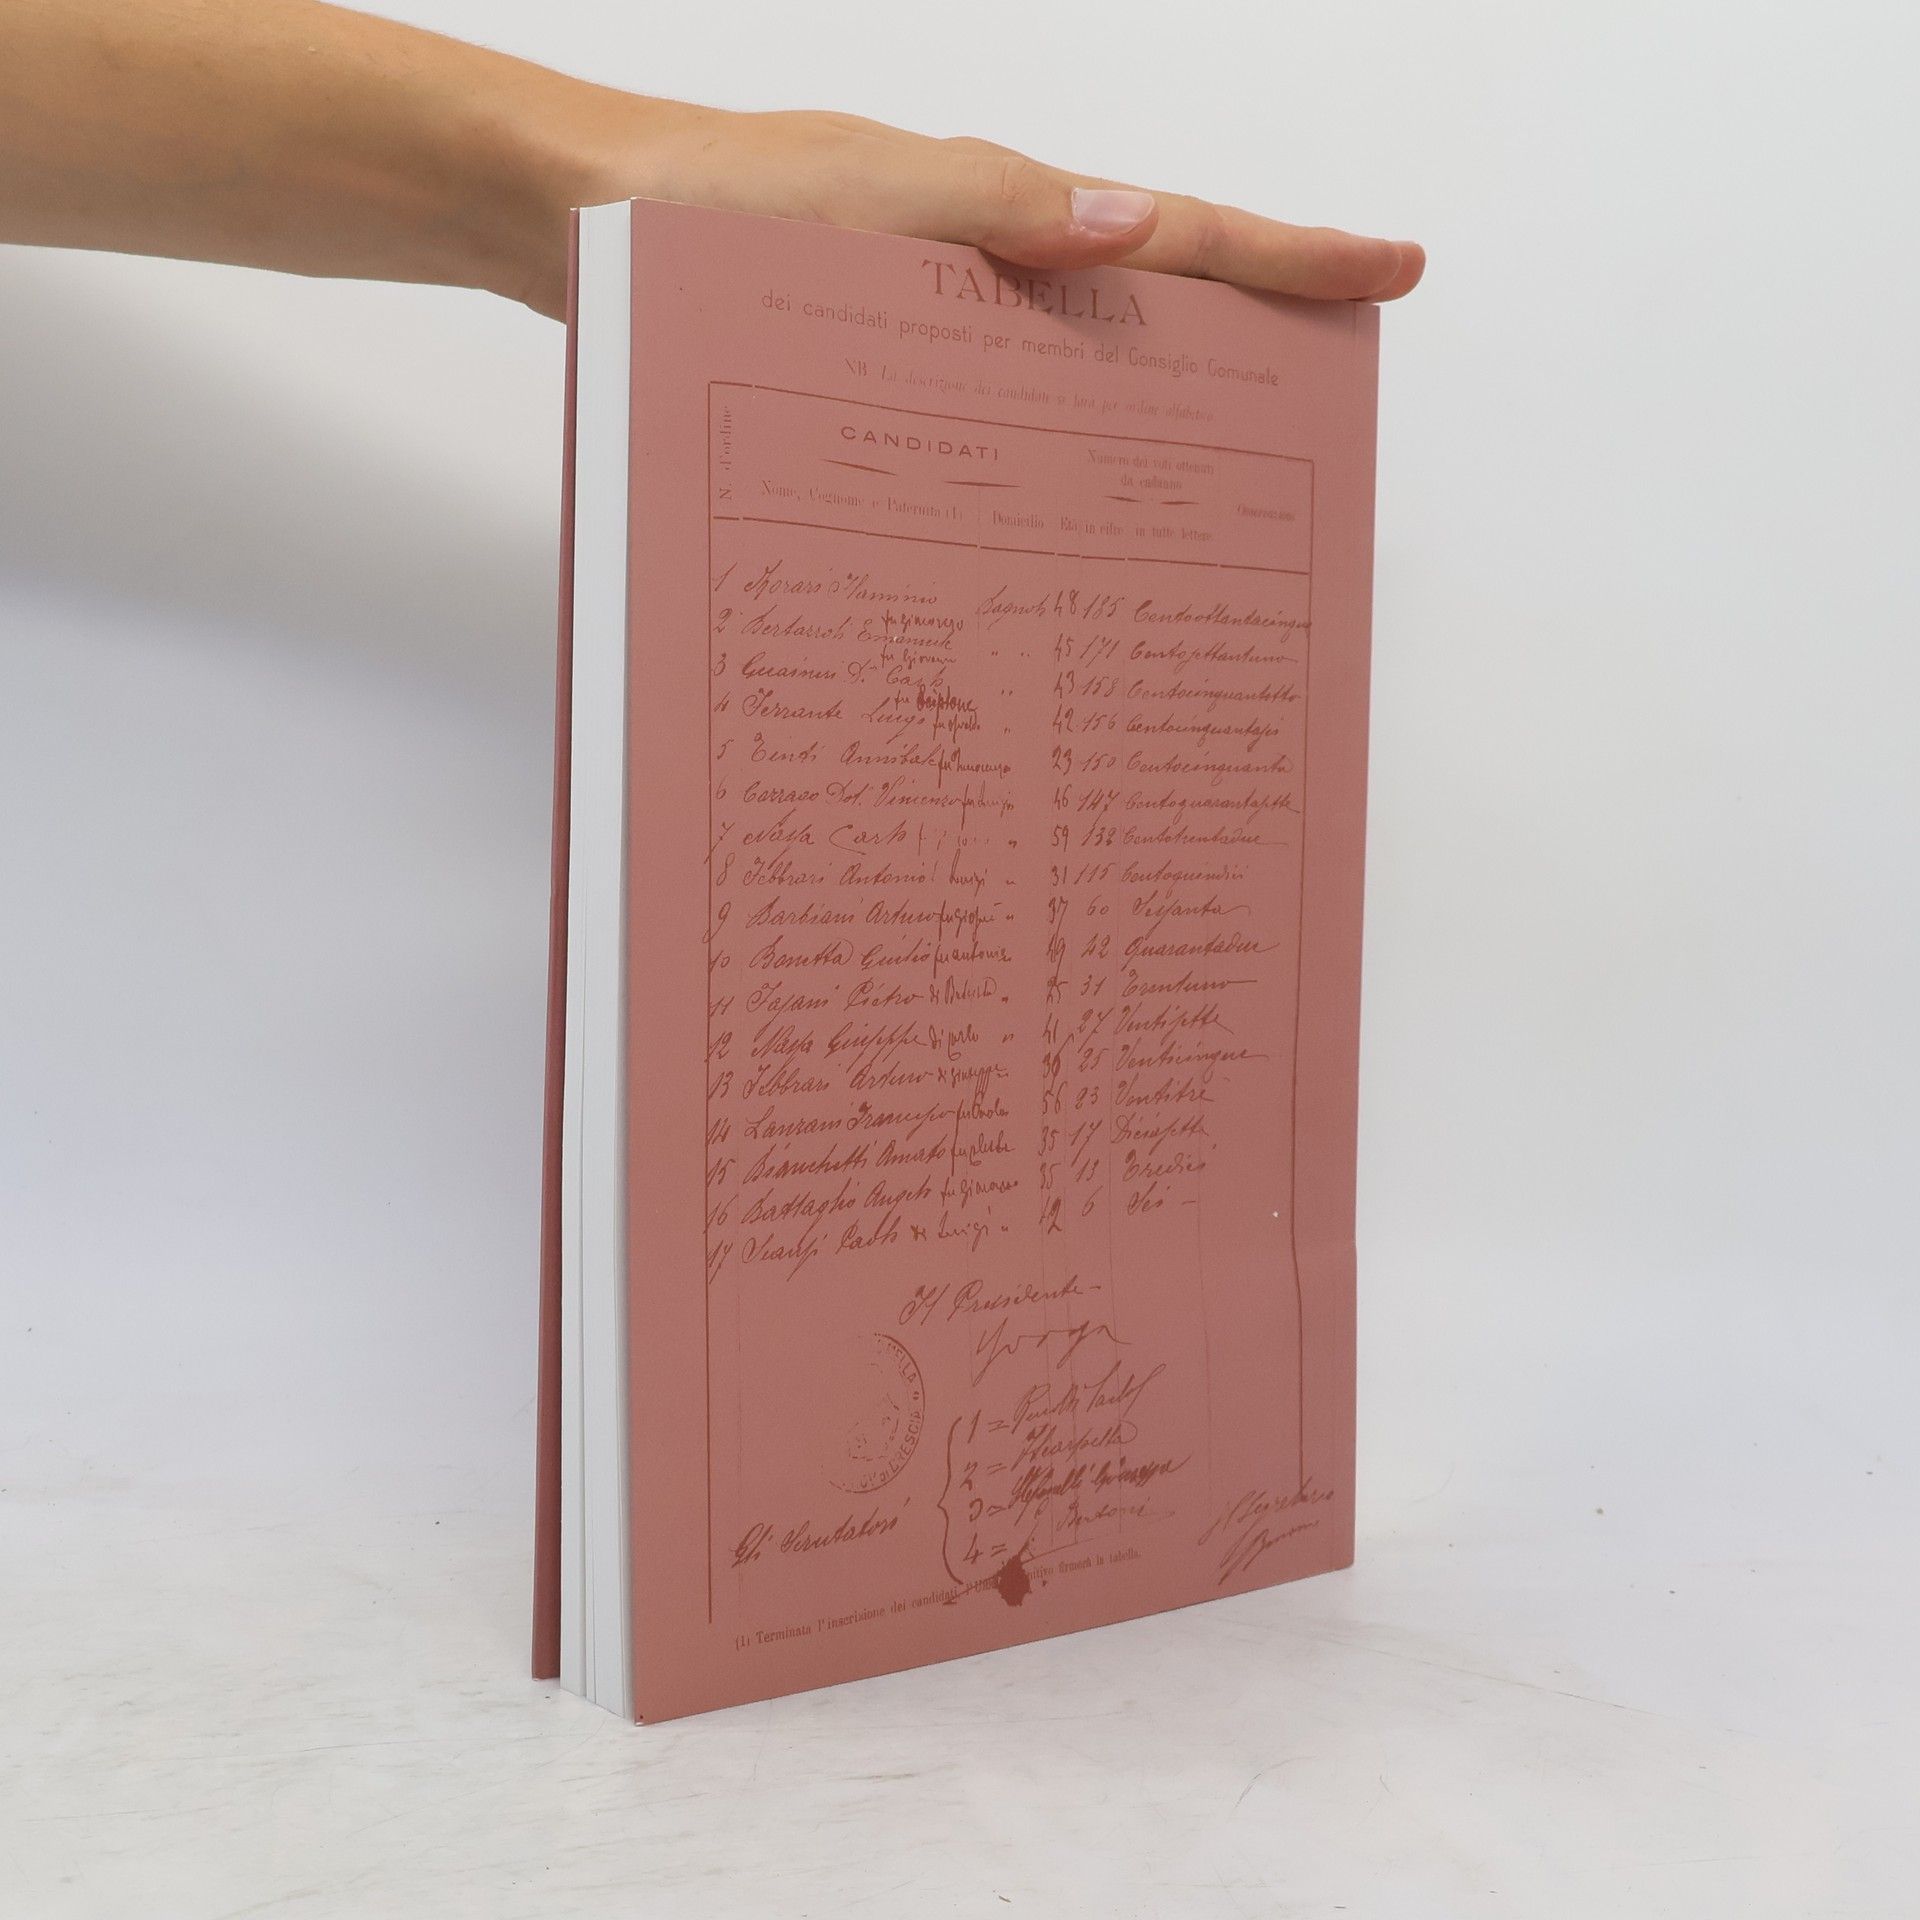 TABELLA
dei candidati proposti per membri del Consiglio Comunale
NB La descrizione dei candidati si farà per ordine alfabetico
N. d'ordine
CANDIDATI
Numero dei voti ottenuti
da cadauno
Nome, Cognome e Paternità (1) Domicilio Età in cifre in tutte lettere Osservazioni
1 Morari Flaminio Bagnolo 48 185 Centoottantacinque
fu Giacomo
2 Bertazzoli Emanuele " " 45 171 Centosettantuno
fu Giovanni
3 Guaineri Dr. Carlo " 43 158 Centocinquantotto
fu Scipione
4 Ferrante Luigi fu Osvaldo " 42 156 Centocinquantasei
5 Tinti Annibale fu Innocenzo 23 150 Centocinquanta
6 Corrado Dot. Vincenzo fu Luigi 46 147 Centoquarantasette
7 Nassa Carlo " 59 132 Centotrentadue
8 Febbrari Antonio Luigi " 31 115 Centoquindici
9 Barbiani Arturo fu Giosuè " 37 60 Sessanta
10 Bonetta Giulio fu Antonio 49 42 Quarantadue
11 Fasani Pietro di Battista " 25 31 Trentuno
12 Nassa Giuseppe di Carlo " 41 27 Ventisette
13 Febbrari Arturo di Giuseppe 36 25 Venticinque
14 Lanzani Francesco fu Paolo 56 23 Ventitrè
15 Bianchetti Amato 35 17 Diciasette
16 Battaglio Angelo fu Giacomo 35 13 Tredici
17 Scarsi Paolo di Luigi " 42 6 Sei -
Il Presidente -
Gorga
Gli Scrutatori
1 =
2 = Scarpella
3 = Giuseppe
4 = Bertoni
il Segretario
(1) Terminata l'inscrizione dei candidati, firmerà la tabella.